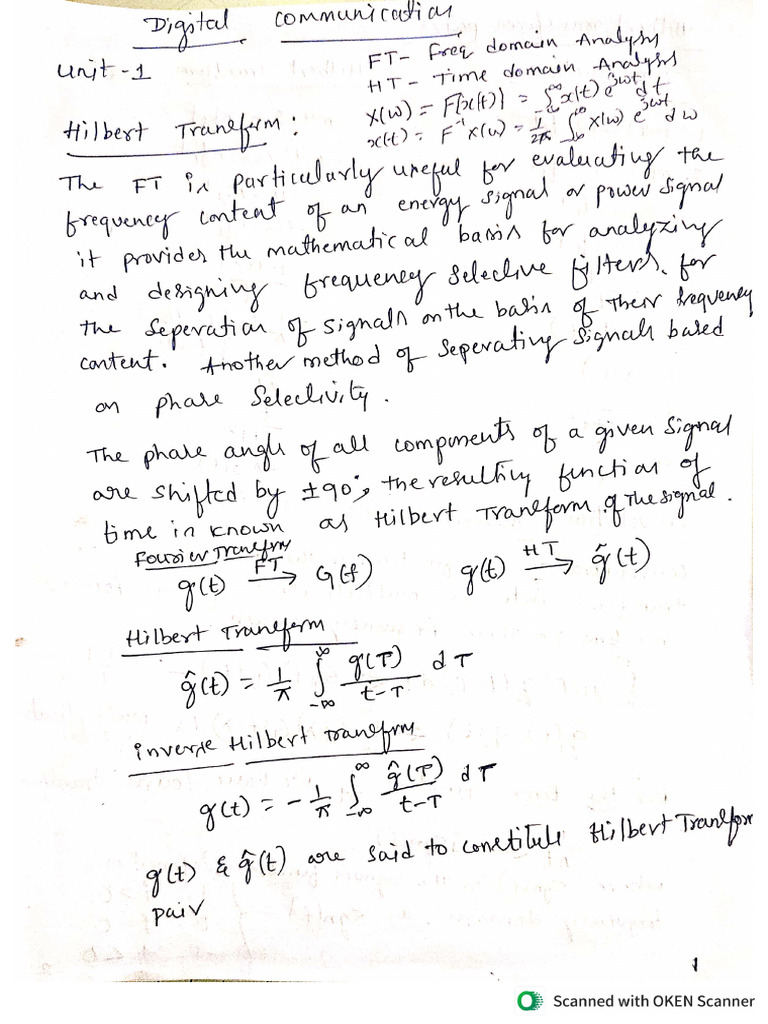 Digital Communication
Unit-1
FT- Freq domain Analysis
HT - Time domain Analysis
X(ω) = F[x(t)] = ∫_{-∞}^{∞} x(t) e^{jωt} dt
x(t) = F^{-1} X(ω) = 1/2π ∫_{-∞}^{∞} X(ω) e^{jωt} dω
Hilbert Transform :
The FT is particularly useful for evaluating the
frequency content of an energy signal or power signal
it provides the mathematical basis for analyzing
and designing frequency selective filters, for
the Seperation of signals on the basis of their frequency
content. Another method of Seperating Signals based
on phase Selectivity.
The phase angle of all components of a given Signal
are shifted by ±90°, the resulting function of
time is known as Hilbert Transform of the signal.
Fourier Transform
g(t) FT → G(f) g(t) HT → ĝ(t)
Hilbert Transform
ĝ(t) = 1/π ∫_{-∞}^{∞} g(τ)/(t-τ) dτ
inverse Hilbert Transform
g(t) = - 1/π ∫_{-∞}^{∞} ĝ(τ)/(t-τ) dτ
g(t) & ĝ(t) are said to constitute Hilbert Transform
pair
1
Scanned with OKEN Scanner